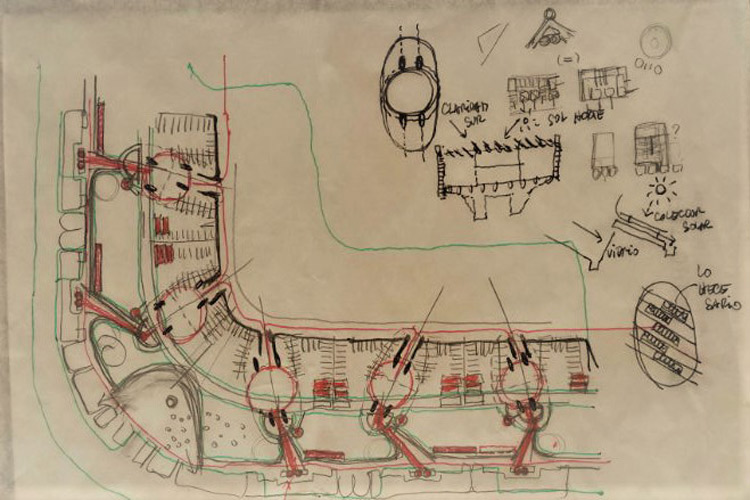 (=)
CLARIDAD
SUR
SOL NORTE
?
COLECTOR
SOLAR
VIDRIO
LO
NECE
SARIO